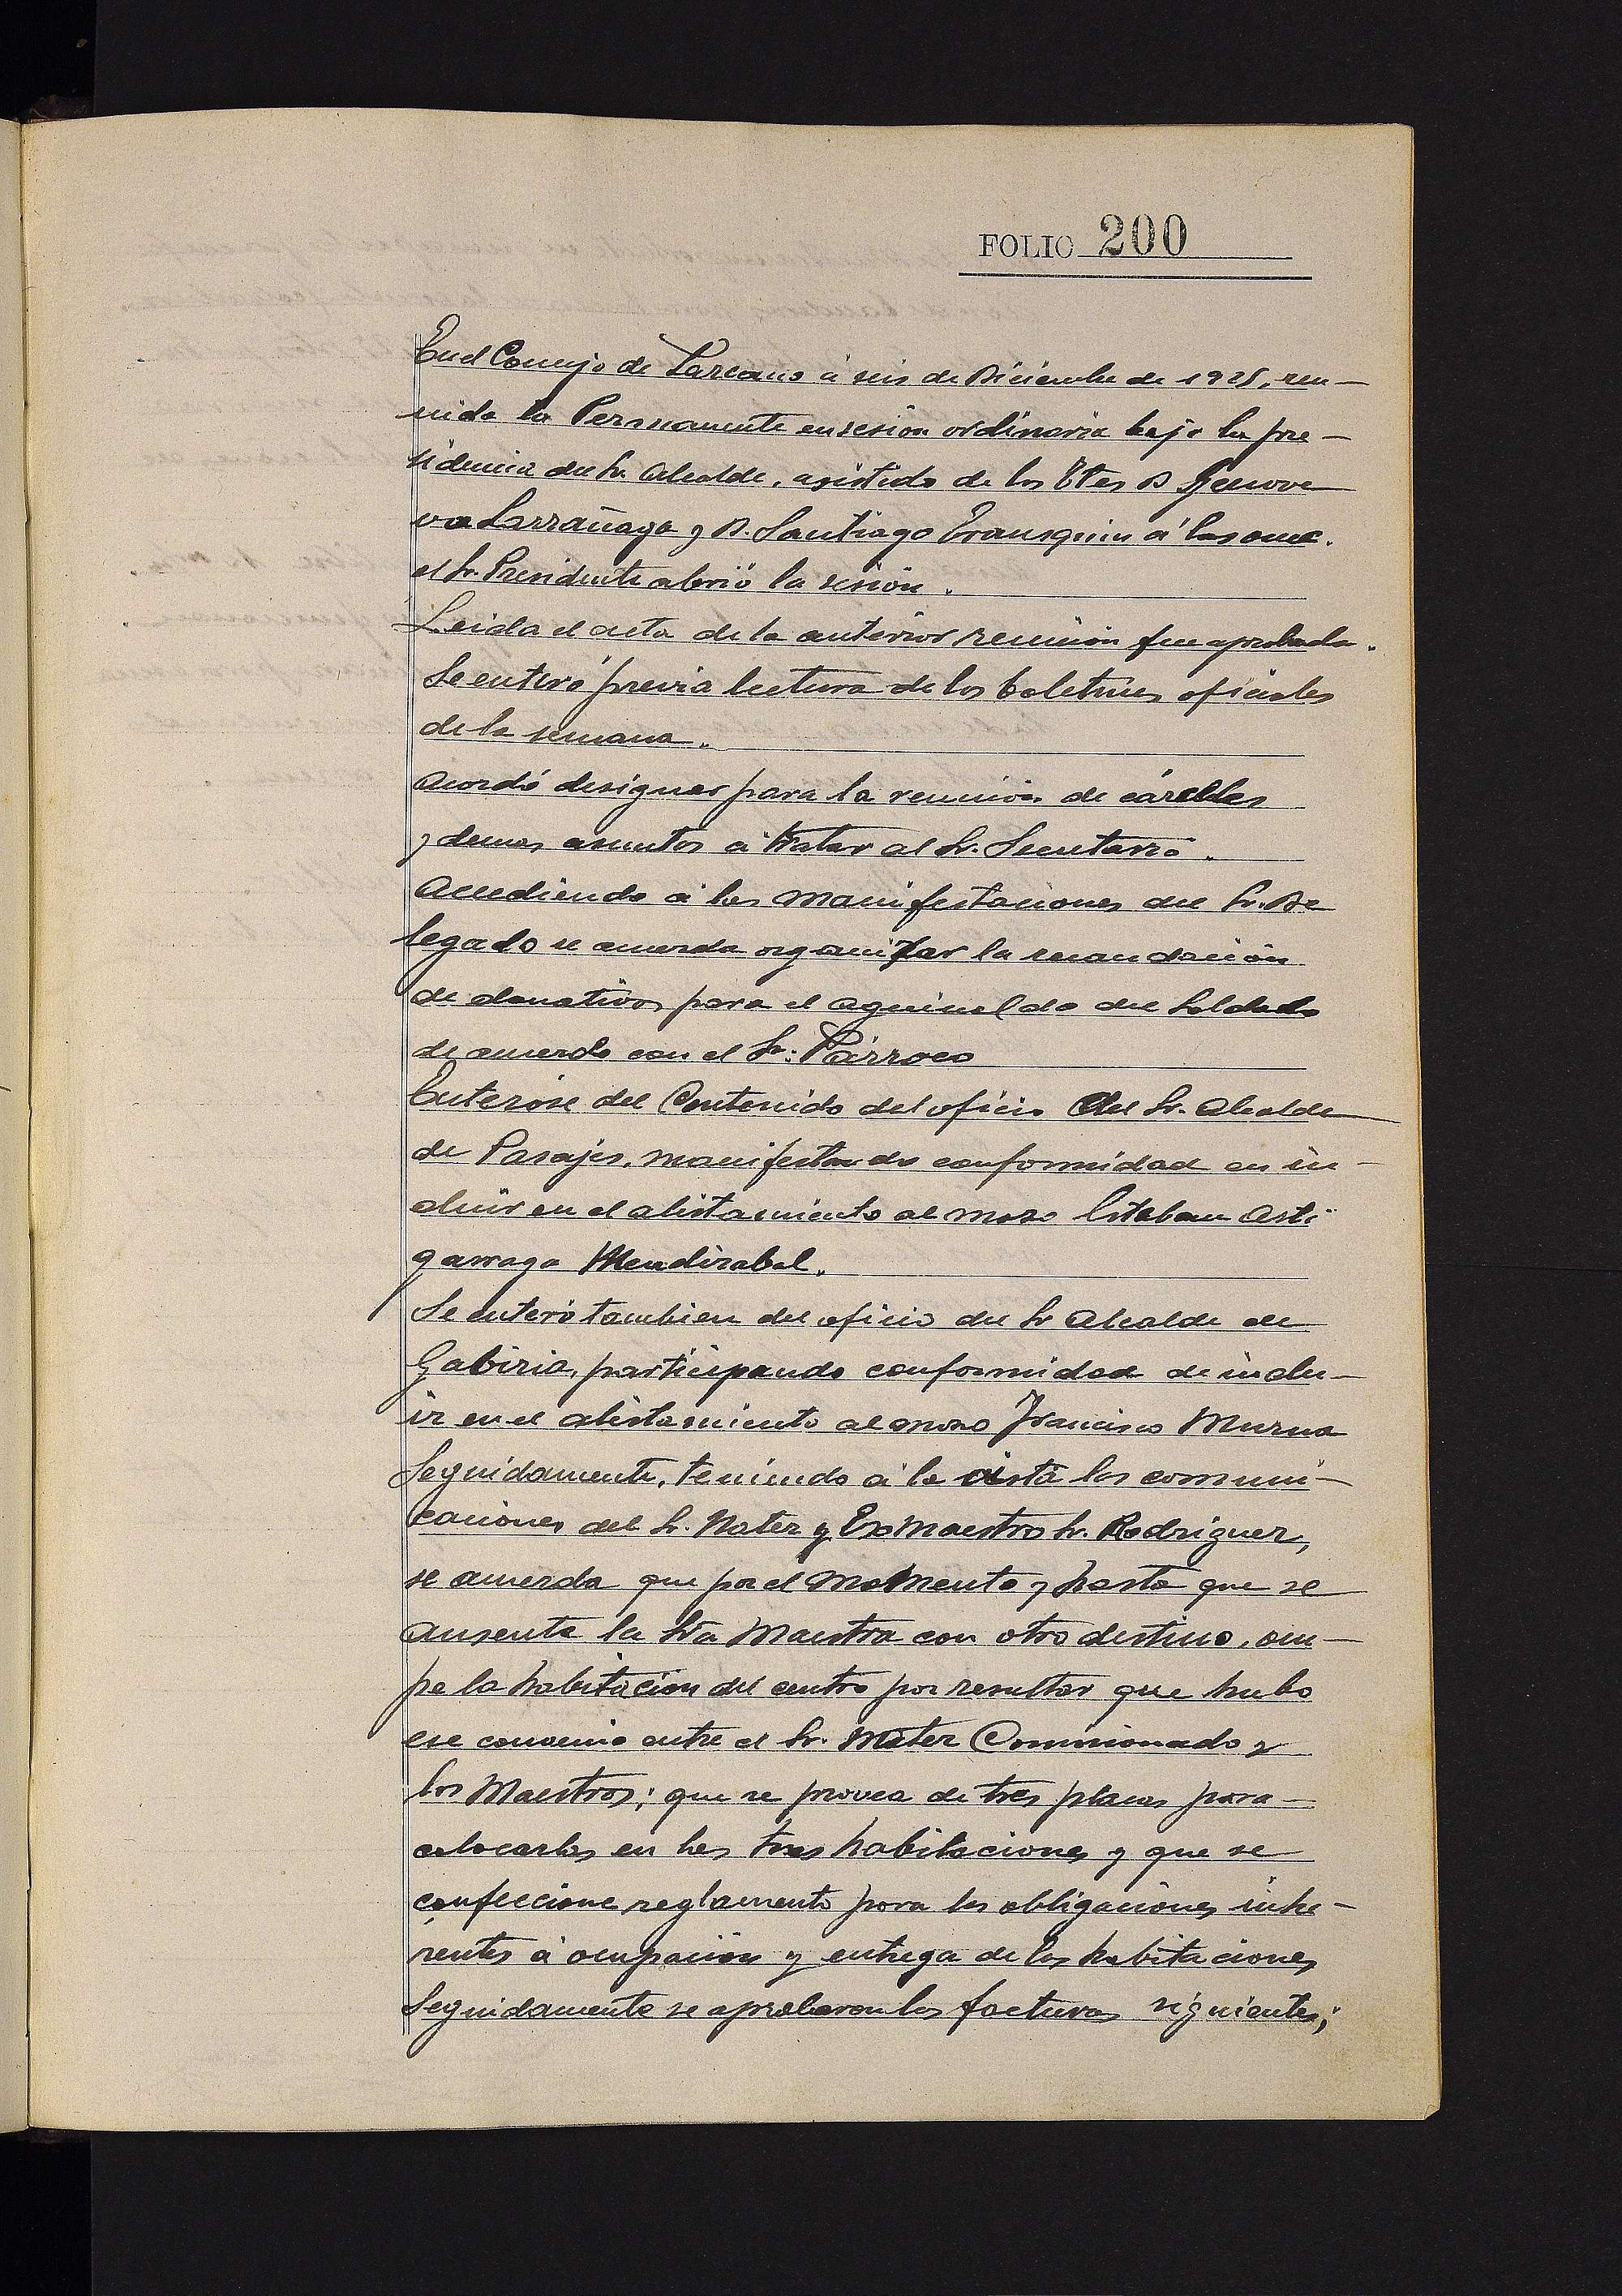 FOLIO 200
En el Concejo de Lazcano á seis de Diciembre de 1925, reu-
nida la Permanente en sesion ordinaria bajo la pre-
sidencia del Sr. Alcalde, asistido de los Ttes D Genove
va Larrañaga y D. Santiago Erausquin á las once.
el Sr. Presidente abrió la sesión.
Leida el acta de la anterior reunión fue aprobada.
Se enteró previa lectura de los boletines oficiales
de la semana.
Acordó designar para la reunion de cárceles
y demas asuntos á tratar al Sr. Secretario.
Accediendo á las manifestaciones del Sr. De
legado se acuerda organizar la recaudación
de donativos para el aguinaldo del Soldado
de acuerdo con el Sr. Párroco
Enterose del Contenido del oficio del Sr. Alcalde
de Pasajes, manifestando conformidad en in-
cluir en el alistamiento al mozo Esteban Asti
garraga Mendizabal.
Se enteró tambien del oficio del Sr Alcalde de
Gabiria, participando conformidad de inclu-
ir en el alistamiento al mozo Francisco Murua
Seguidamente, teniendo á la vista las comuni-
caciones del Sr. Mater y Exmaestro Sr. Rodriguez,
se acuerda que por el momento y hasta que se
ausente la Sra Maestra con otro destino, ocu-
pe la habitación del centro por resultar que hubo
ese convenio entre el Sr. Mater Comisionado y
los Maestros; que se provea de tres placas para
colocarlas en las tres habitaciones y que se
confeccione reglamento para las obligaciones inhe-
rentes á ocupación y entrega de las habitaciones
Seguidamente se aprobaron las facturas siguientes;